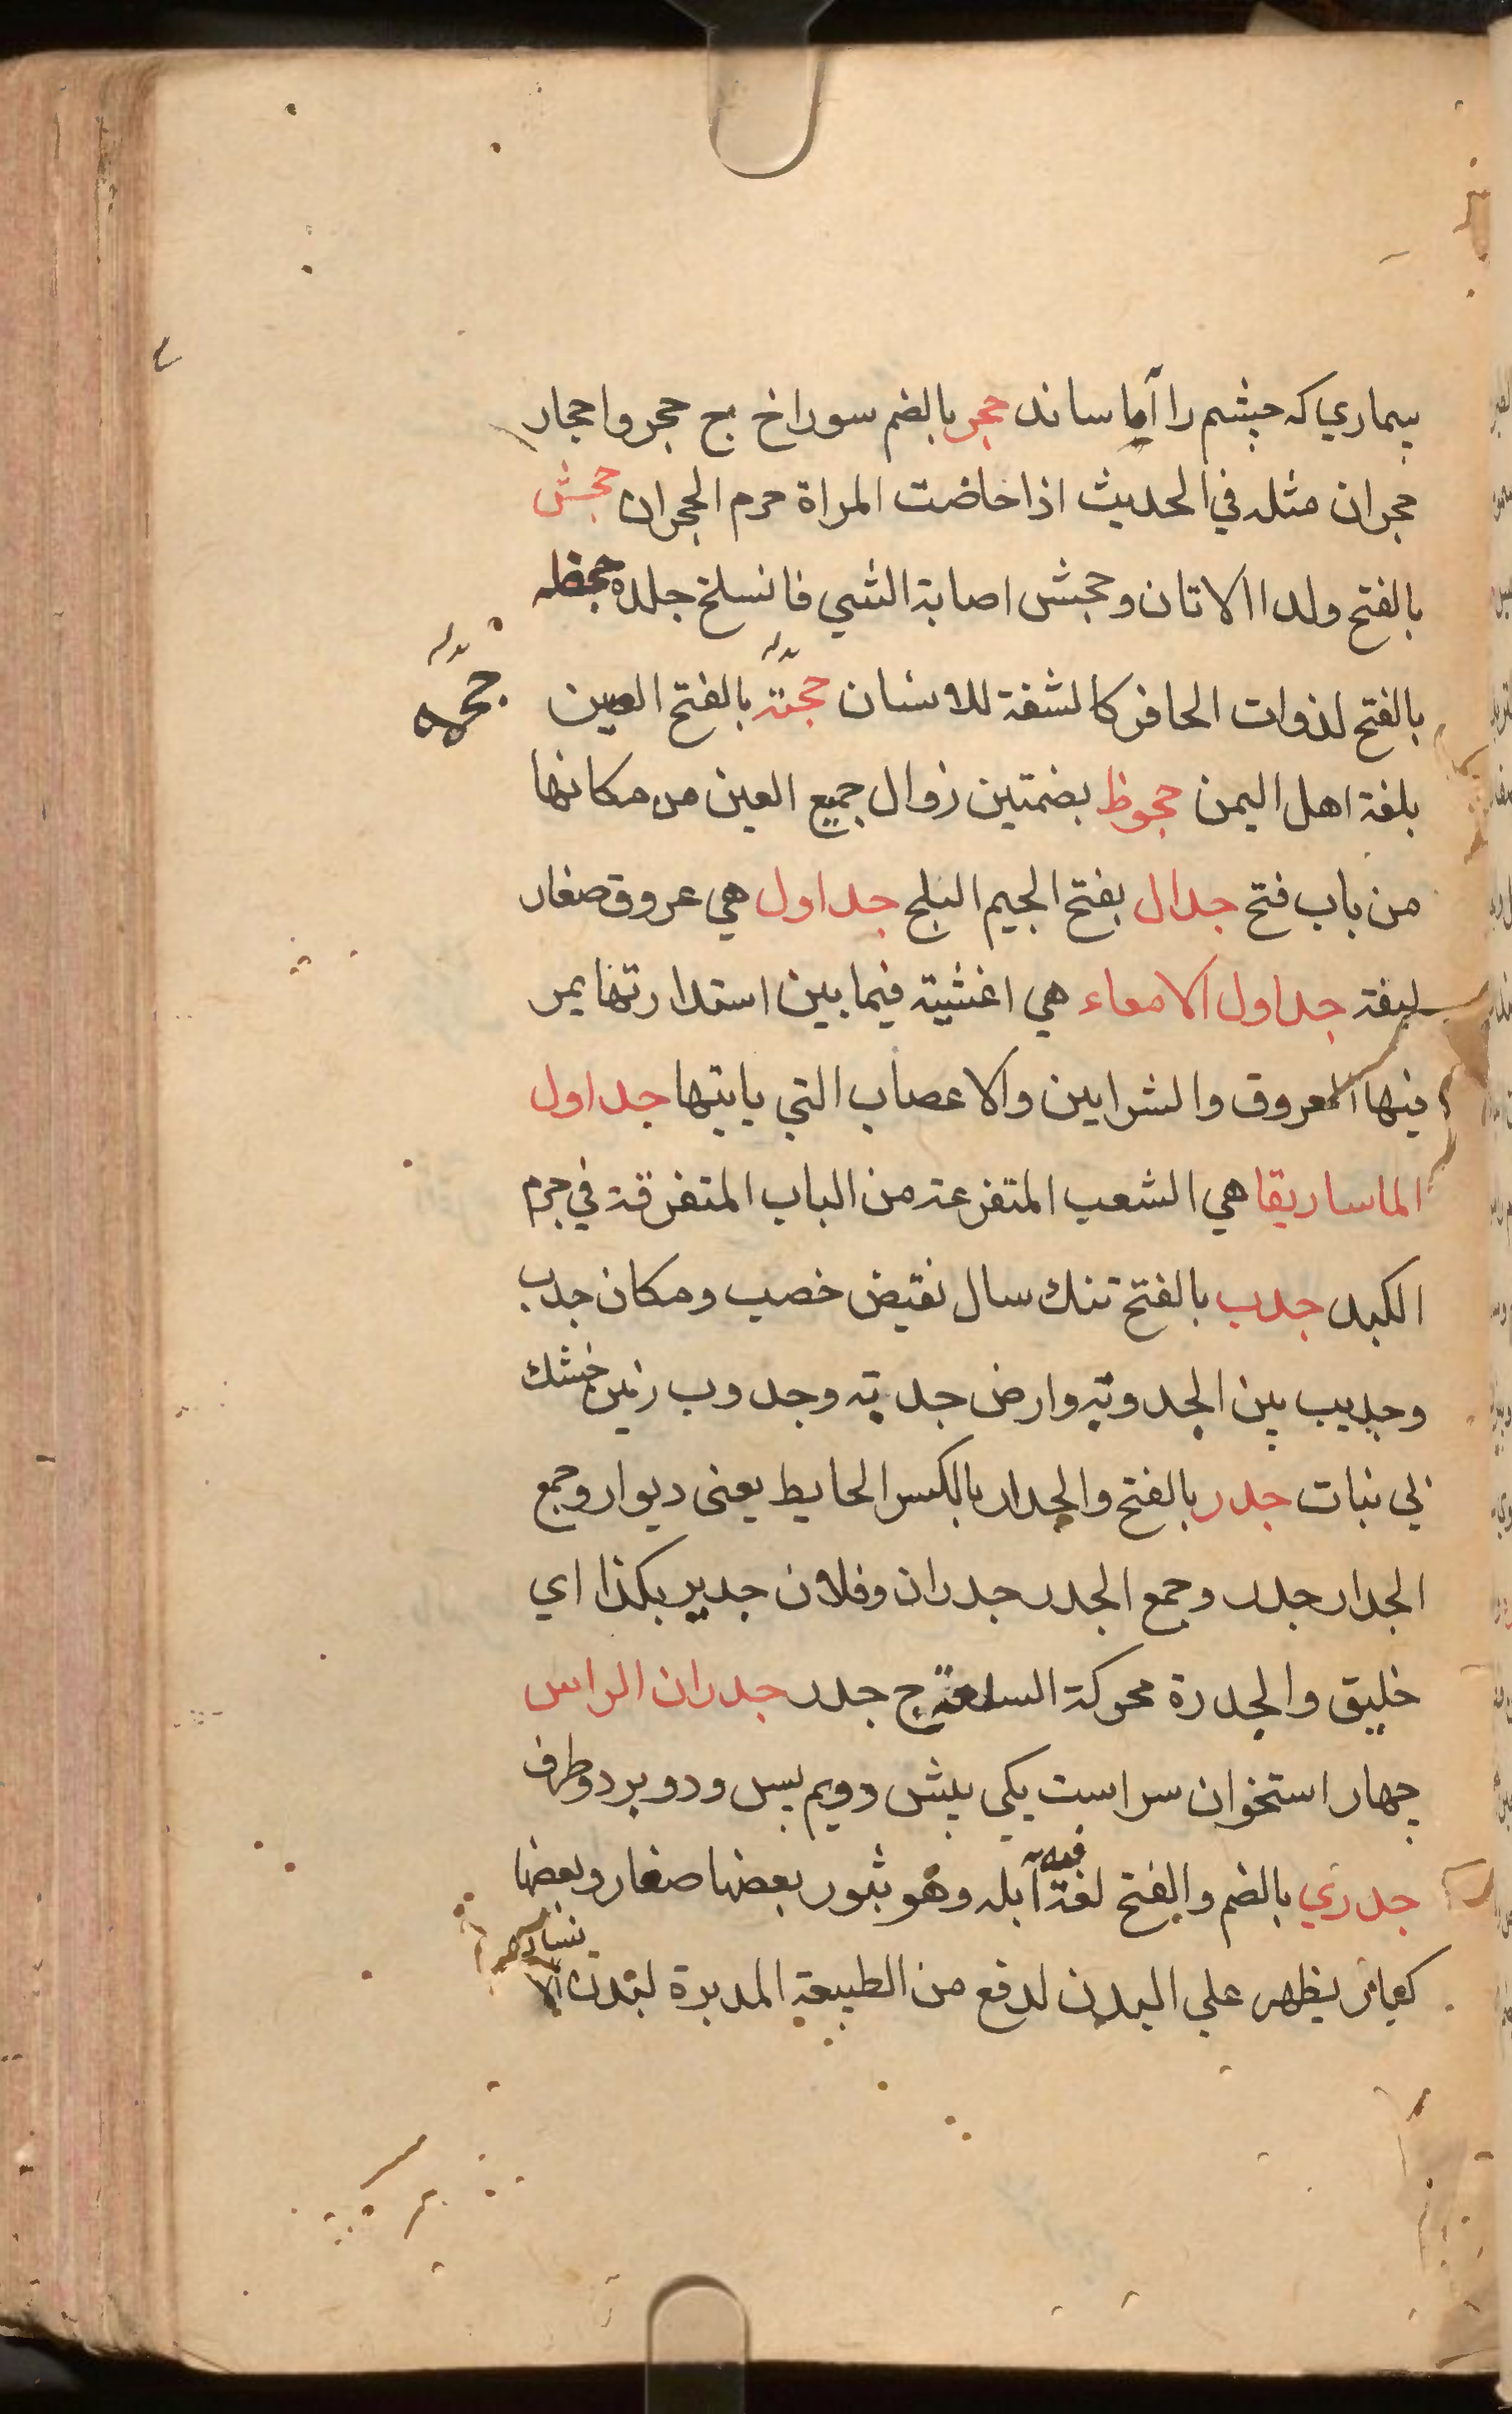 بيماري كه چشم را آماساند حجر بالضم سوراخ ج حجر واحجار
حجران مثله في الحديث اذا حاضت المراة حرم الحجران جحش
بالفتح ولد الاتان وجحش اصابة الشي فانسلخ جلده جحفله
بالفتح لذوات الحافر كالشفة للانسان جحمة بالفتح العين
جحمه
بلغة اهل اليمن جحوظ بضمتين زوال جميع العين من مكانها
من باب فتح جدال بفتح الجيم البلح جداول هي عروق صغار
ليفة جداول الامعاء هي اغشية فيما بين استدارتها يمر
فيها العروق والشرايين والاعصاب التي ياتيها جداول
الماساريقا هي الشعب المتفرعة من الباب المتفرقة في جرم
الكبد جدب بالفتح تنك سال نقيض خصب ومكان جدب
وجديب بين الجدوبة وارض جدبة وجدوب زمين خشك
بي نبات جدر بالفتح والجدار بالكسر الحايط يعنى ديوار وجمع
الجدار جدر وجمع الجدر جدران وفلان جدير بكذا اي
خليق والجدرة محركة السلعة ج جدر جدران الراس
چهار استخوان سراست يكى پيش دويم پس ودو بر دو طرف
جدري بالضم والفتح لغة فيه آبله وهو بثور بعضها صغار وبعضها
كبار يظهر على البدن لدفع من الطبيعة المدبرة لبدن